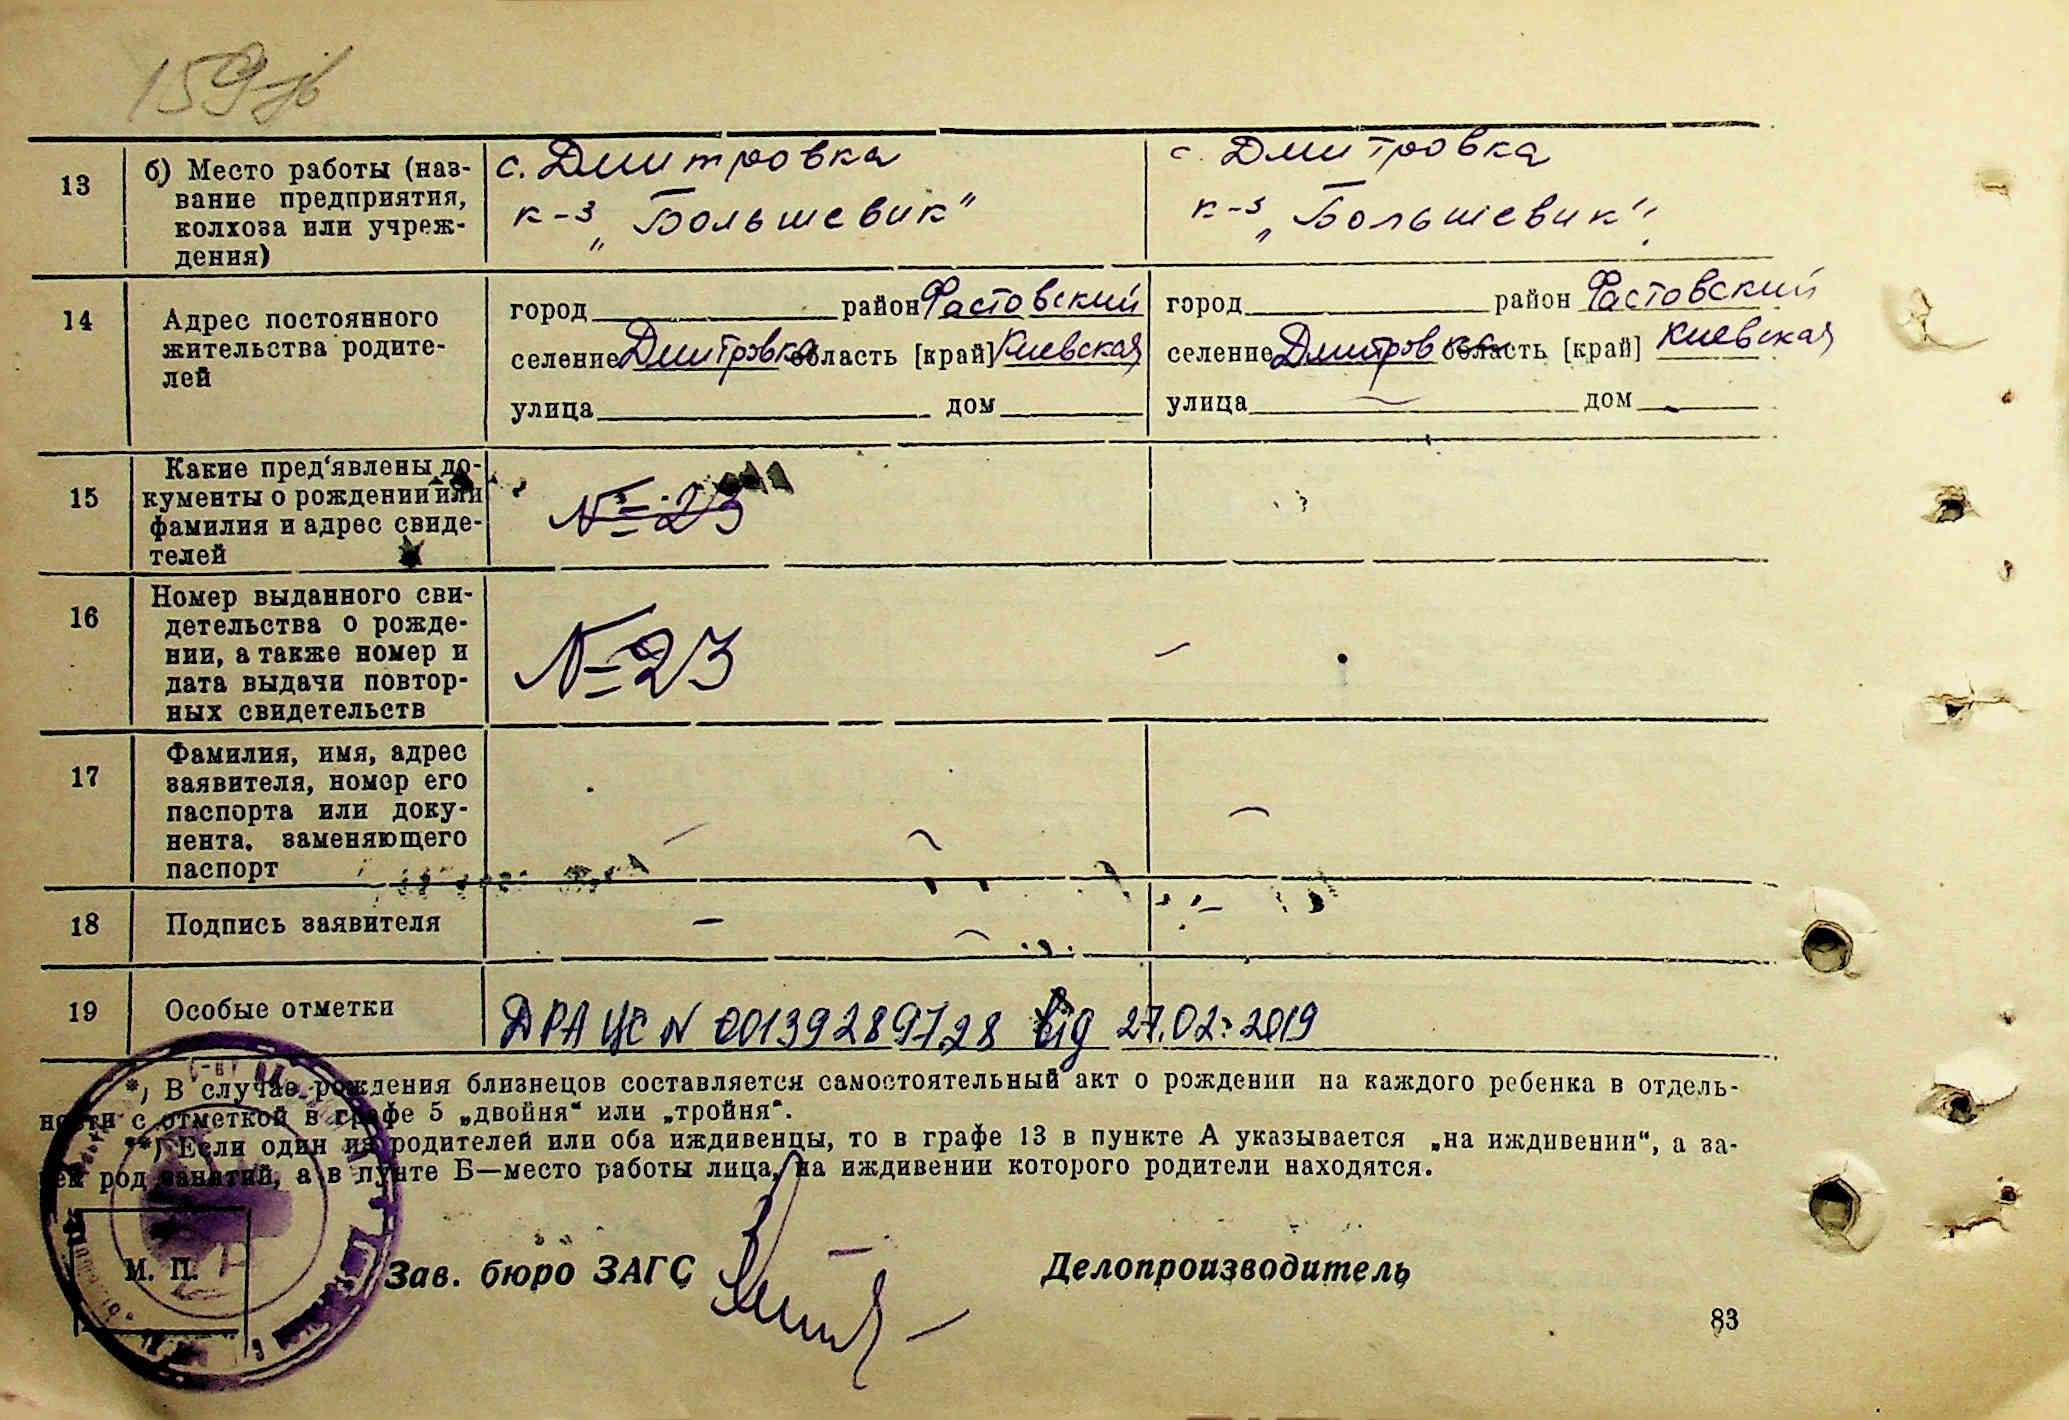 159
13
б) Место работы (наз-
вание предприятия,
колхоза или учреж-
дения)
с. Дмитровка
к-з „Большевик"
с. Дмитровка
к-з „Большевик"
14
Адрес постоянного
жительства родите-
лей
город район Фастовский
селение Дмитровка область [край] Киевская
улица дом
город район Фастовский
селение Дмитровка область [край] Киевская
улица дом
15
Какие пред'явлены до-
кументы о рождении или
фамилия и адрес свиде-
телей
№ 23
16
Номер выданного сви-
детельства о рожде-
нии, а также номер и
дата выдачи повтор-
ных свидетельств
№ 23
17
Фамилия, имя, адрес
заявителя, номер его
паспорта или доку-
нента, заменяющего
паспорт
18
Подпись заявителя
19
Особые отметки
ДРАЦС N 00139289728 від 27.02.2019
*) В случае рождения близнецов составляется самостоятельный акт о рождении на каждого ребенка в отдель-
ности с отметкой в графе 5 „двойня“ или „тройня“.
**) Если один из родителей или оба иждивенцы, то в графе 13 в пункте А указывается „на иждивении“, а за-
тем род занятий, а в пункте Б—место работы лица, на иждивении которого родители находятся.
М. П.
Зав. бюро ЗАГС
Делопроизводитель
83